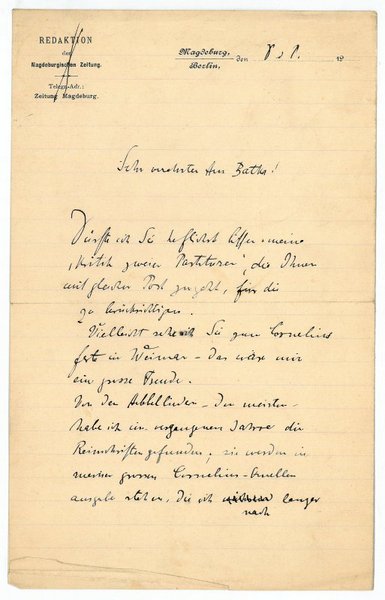 REDAKTION
der
Magdeburgischen Zeitung.
Telegr.-Adr.:
Zeitung Magdeburg.
Magdeburg,
Berlin,
den
19
Sehr verehrter Herr Batka!
Dürfte ich Sie höflichst bitten meine
„Kritik zweier Partituren", die Ihnen
mit gleicher Post zugeht, für die
zu berücksichtigen.
Vielleicht sehe ich Sie zum Cornelius
feste in Weimar – das wäre mir
eine grosse Freude.
Von den – den meisten –
habe ich im vergangenen Jahre die
Reinschriften gefunden; sie werden in
meiner grossen Cornelius-
ausgabe stehen, die ich langer
nach